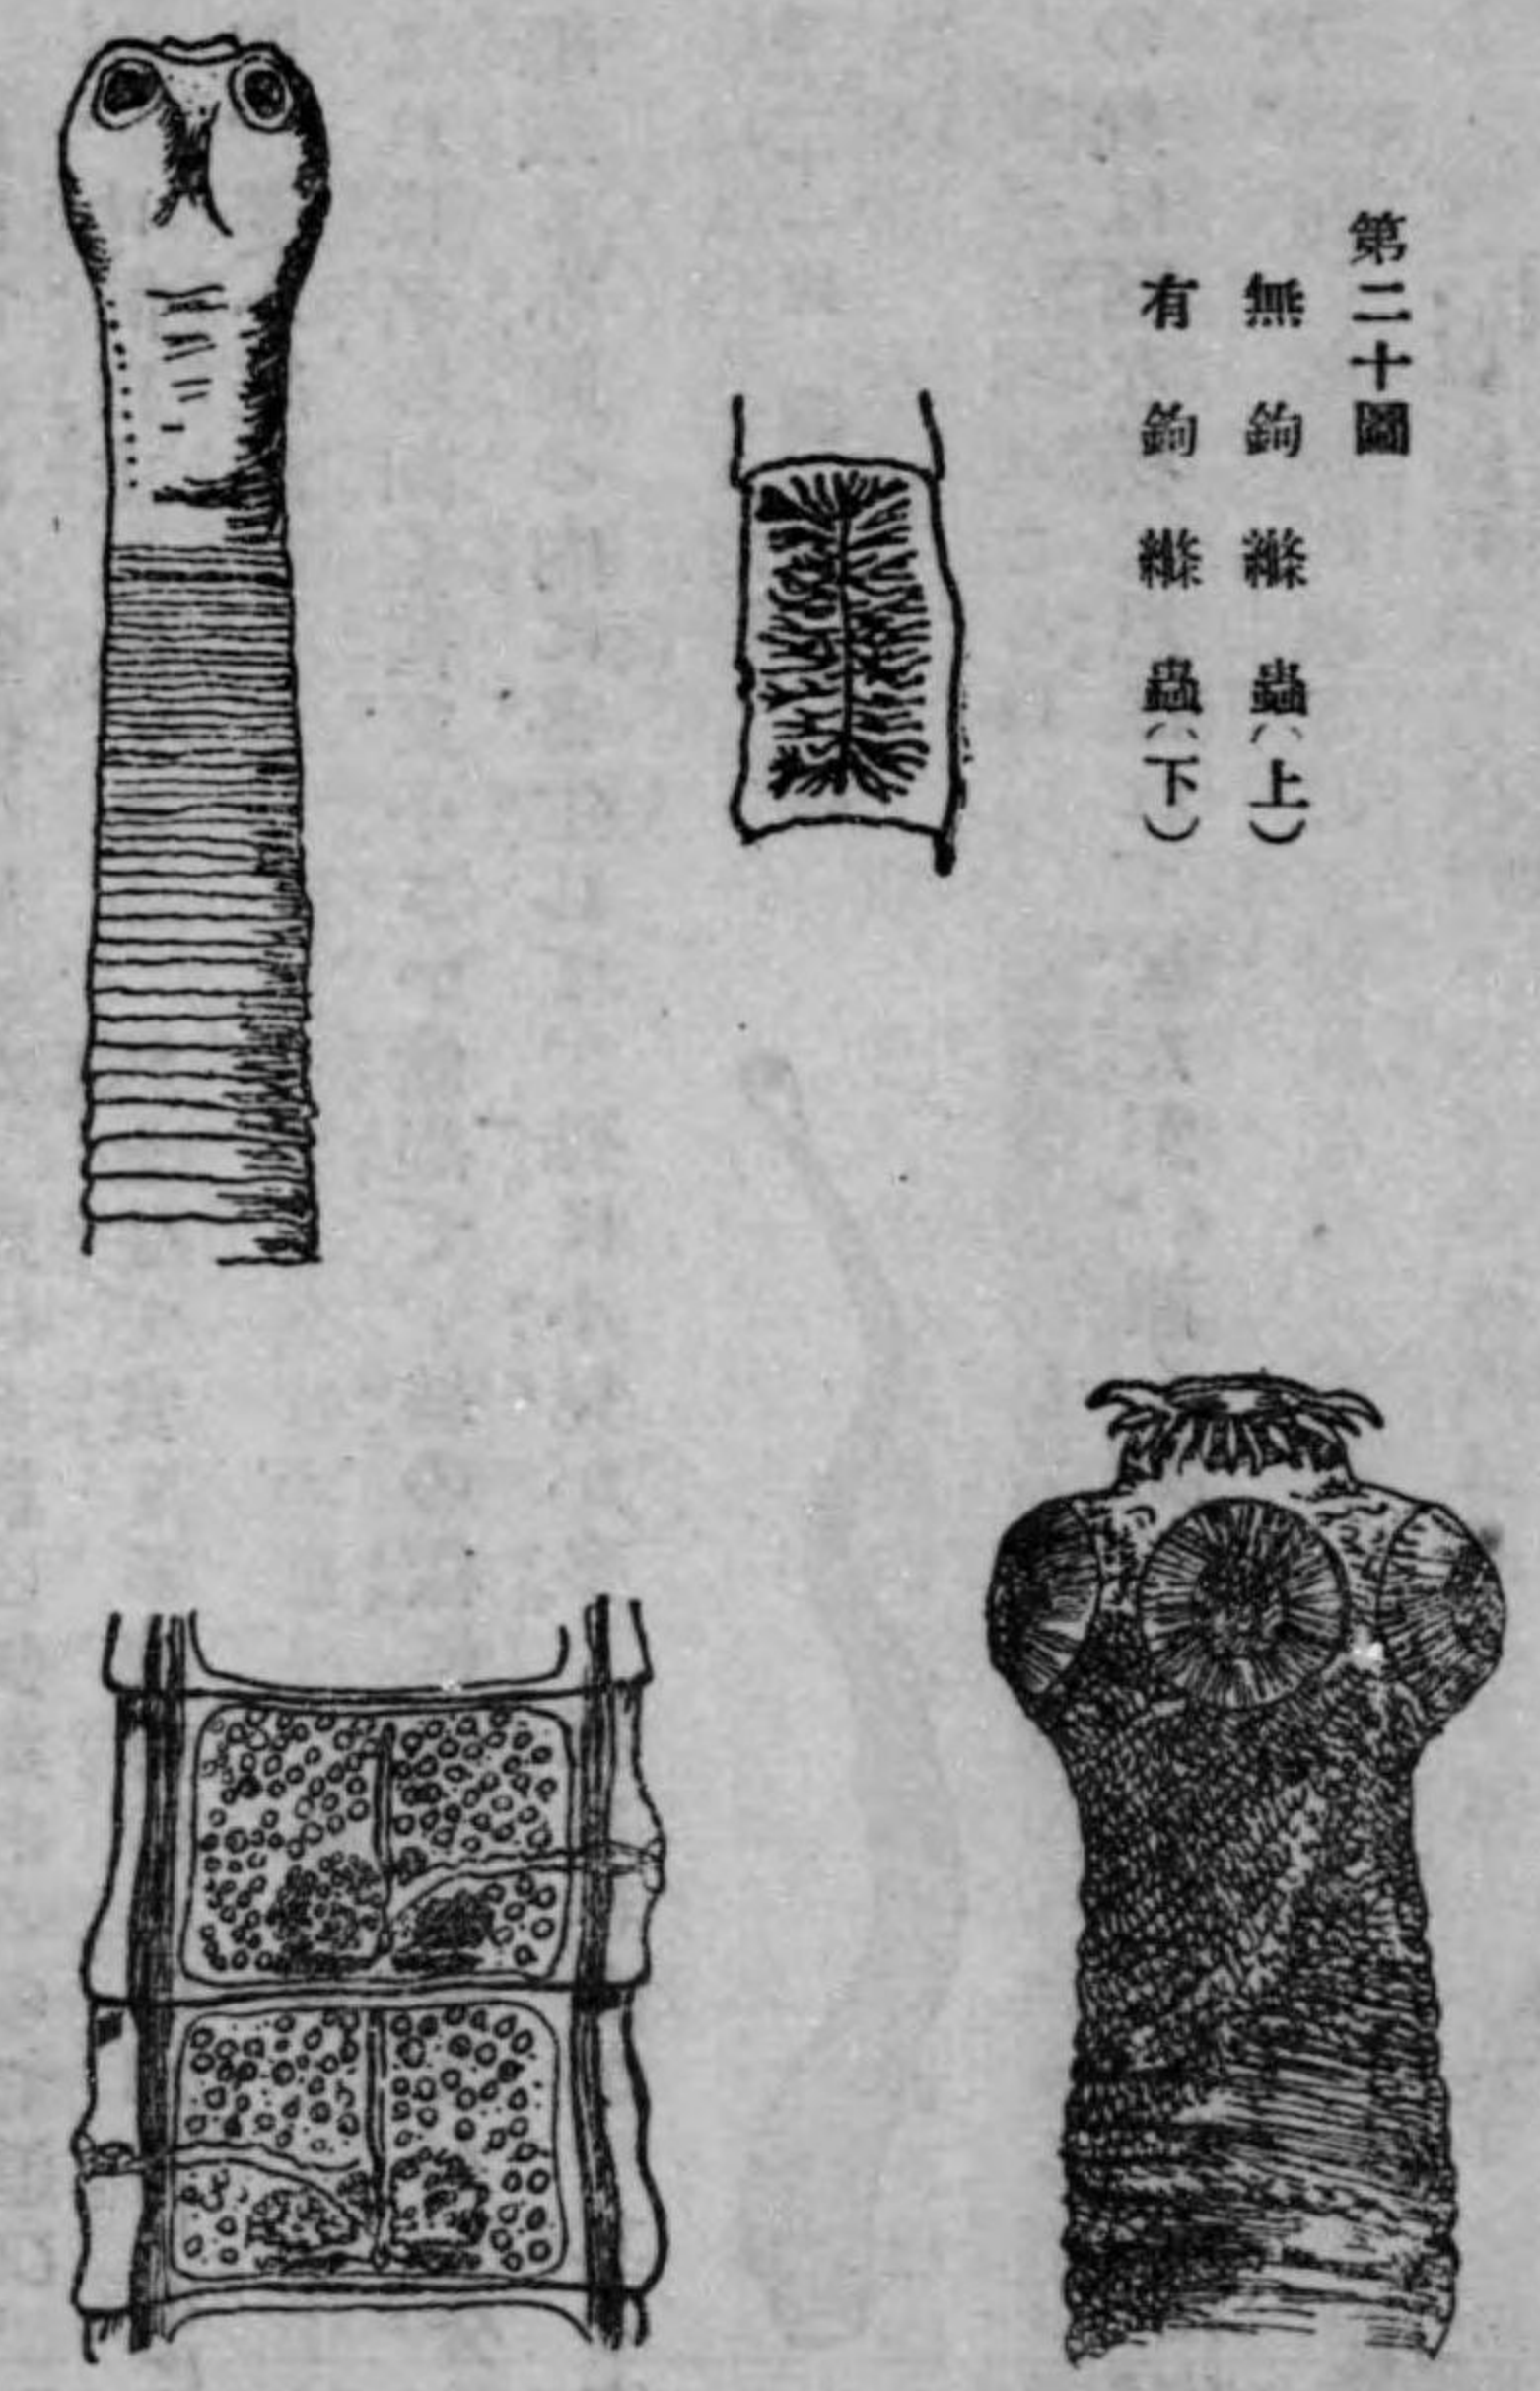 第二十圖
無鉤縧蟲(上)
有鉤縧蟲(下)